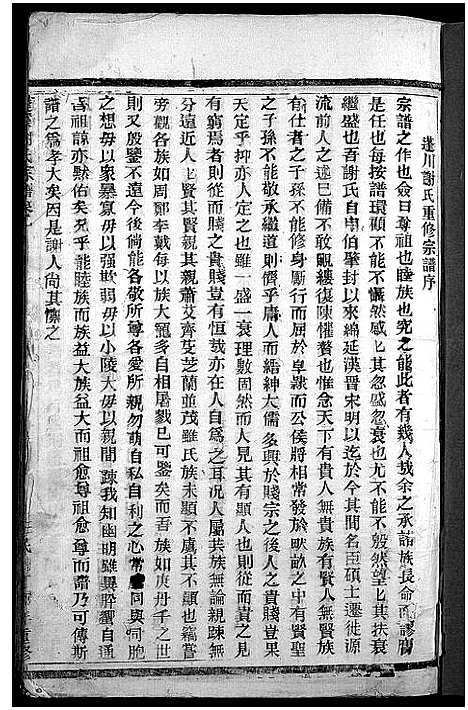 蓮川謝氏重修宗譜序
宗譜之作也僉曰尊祖也睦族也究之能此者有幾人哉余之承諸族長命而謬膺
是任也每按譜環顧不能不慨然感乜其忽盛忽衰也尤不能不殷然望乜其扶衰
繼盛也吾謝氏自申伯肇封以來綿延漢晋宋明以迄於今其間名臣碩士遷徙源
流前人之述巳備不敢覼縷復陳惟嘗迷念天下有貴人無貴族有賢人無賢族
有仕者之子孫不能修身勵行而屈於皁隸而公侯將相常發於畎畝之中有賢聖
之子孫不能敬承繼道則儕乎庸人而縉紳大儒多興於賤宗之後人之貴賤豈果
天定乎抑亦人定之也雖一盛一衰理數固然而人見其有顯人也則從而貴之見
有窮焉者則從而賤之貴賤豈有恒哉亦在人自為之耳况人屬共族無論親踈無
分遠近人乜賢其賢親其親蕭艾齊芟芝蘭並茂雖氏族未顯不虞其不顯也竊嘗
旁觀各族如周鄭李戴每以族大寵多自相屠戮巳可鑒矣而吾族如庚丹千之世
則又殷鑒不遠今後倘能各敬所尊各愛所親勿萌自私自利之心常 同與同胞
之想毋以衆暴寡毋以强欺弱毋以小陵大毋以親間踈我知幽明雖異
吾祖諒亦默佑矣况乎能睦族而族益大族益大而祖愈尊祖愈尊而譜乃可傳斯
譜之為孝大矣因是謝人尚其懍之